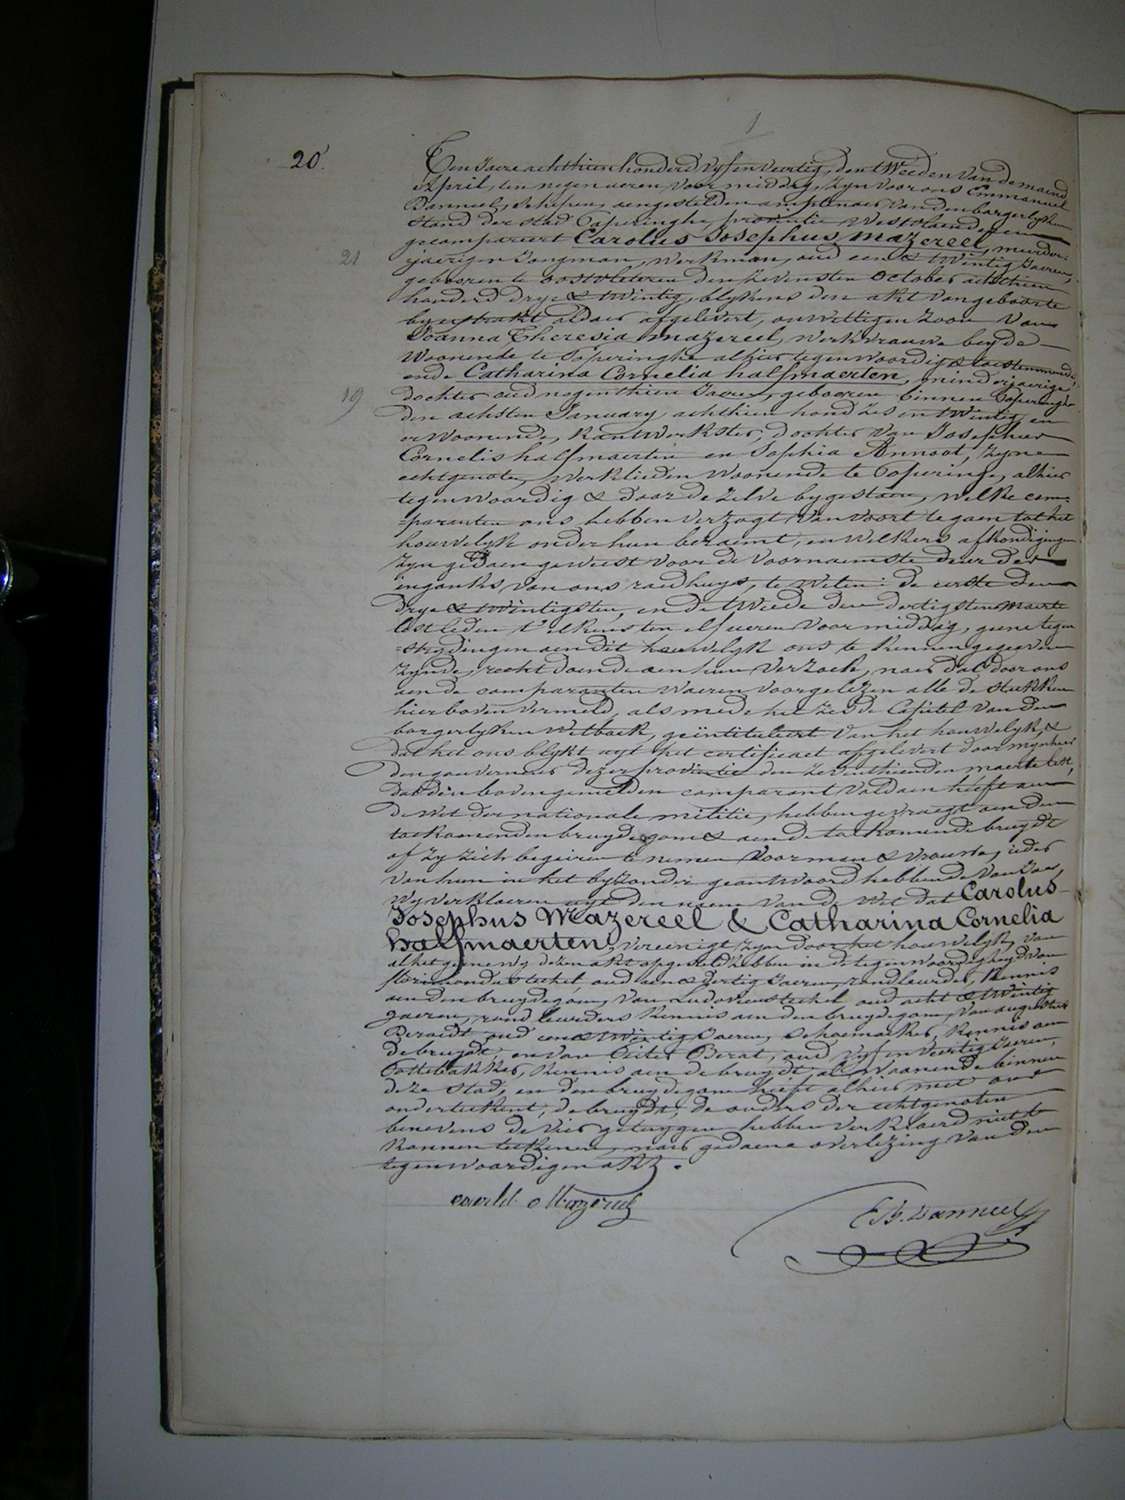 1
20.
Ten Jaere achthien honderd vyf en veertig, den tweeden van de maend
April, ten negen ueren voor middag, zyn voor ons Emmanuel
Banneel, schepen, aengestelden amptenaer van den borgerlyken
stand der stad Poperinghe, provintie Westvlaenderen
gecompareert Carolus Josephus Mazereel, minder-
21
jaerigen Jongman, werkman, oud een & twintig Jaeren,
geboren te oostvleteren den zevensten October achthien
honderd drye & twintig, blykens den akt van geboorte
by extrakt aldaer afgelevert, onwettigen zoon van
Joanna Theresia Mazereel, werkvrouwe beyde
woonende te Poperinghe alhier tegenwoordig & toestemmende,
ende Catharina Cornelia halfmaerten, minderjaerige
19
dochter oud negenthien Jaeren, geboren binnen Poperinghe
den achsten January, achthien hond. zes en twintig, en
er woonende, kantwerkster, dochter van Josephus
Cornelis halfmaerten en Sophia Annoot, zyne
echtgenote, werklieden woonende te Poperinge, alhier
tegenwoordig & door de zelve bygestaen, welke com-
=paranten ons hebben verzogt van voort te gaen tot het
houwelyk onder hun beraemt, en welkers afkondigingen
zyn gedaen geweest voor de voornaemste deur der
ingank van ons raedhuys, te weten: de eerste den
drye & twintigsten, en de tweede den dertigsten maerte
lest leden t'elkens ten elf ueren voor middag, geene tegen
=strydingen aen dit houwelyk ons te kennen gegeven
zynde, recht doende aen hun verzoek, naer dat door ons
aen de comparanten waeren voorgelezen alle de stukken
hier boven vermeld, als mede het zesde Capitel van den
borgerlyken Wetboek, geïntituleert van het houwelyk, &
dat het ons blykt uyt het certificaet afgelevert door mynheer
den gouverneur dezer provintie den zeventhienden maerte lest,
dat den bovengemelden comparant voldaen heeft aen
de wet der nationale militie, hebben gevraegt aen den
toekomenden bruydegom & aen de toekomende bruydt
of zy zich begeiren te nemen voor man & vrouwe, ieder
van hun in het byzonder geantwoord hebbende van Jae,
wy verklaeren uyt den naem van de wet dat Carolus
Josephus Mazereel & Catharina Cornelia
halfmaerten, vereenigt zyn door het houwelyk, van
al het gene wy dezen akt opgesteld hebben in de tegenwoordigheyd van
oud een & dertig Jaeren, kennis
aen den bruydegom, van Ludovicus oud acht & twintig
Jaeren, kennis aen den bruydegom, van
oud en & twintig Jaeren, schoemaker, kennis aen
de bruydt, en van Pieter oud vyf en veertig Jaeren,
kennis aen de bruydt, al woonende binnen
deze stad, en den bruydegom heeft alhier met ons
onderteekent, de bruydt, de ouders der echtgenoten
benevens de vier getuygen hebben verklaerd niet te
konnen teekenen, naer gedaene overlezing van den
tegenwoordigen akt.
Mazereel
Banneel